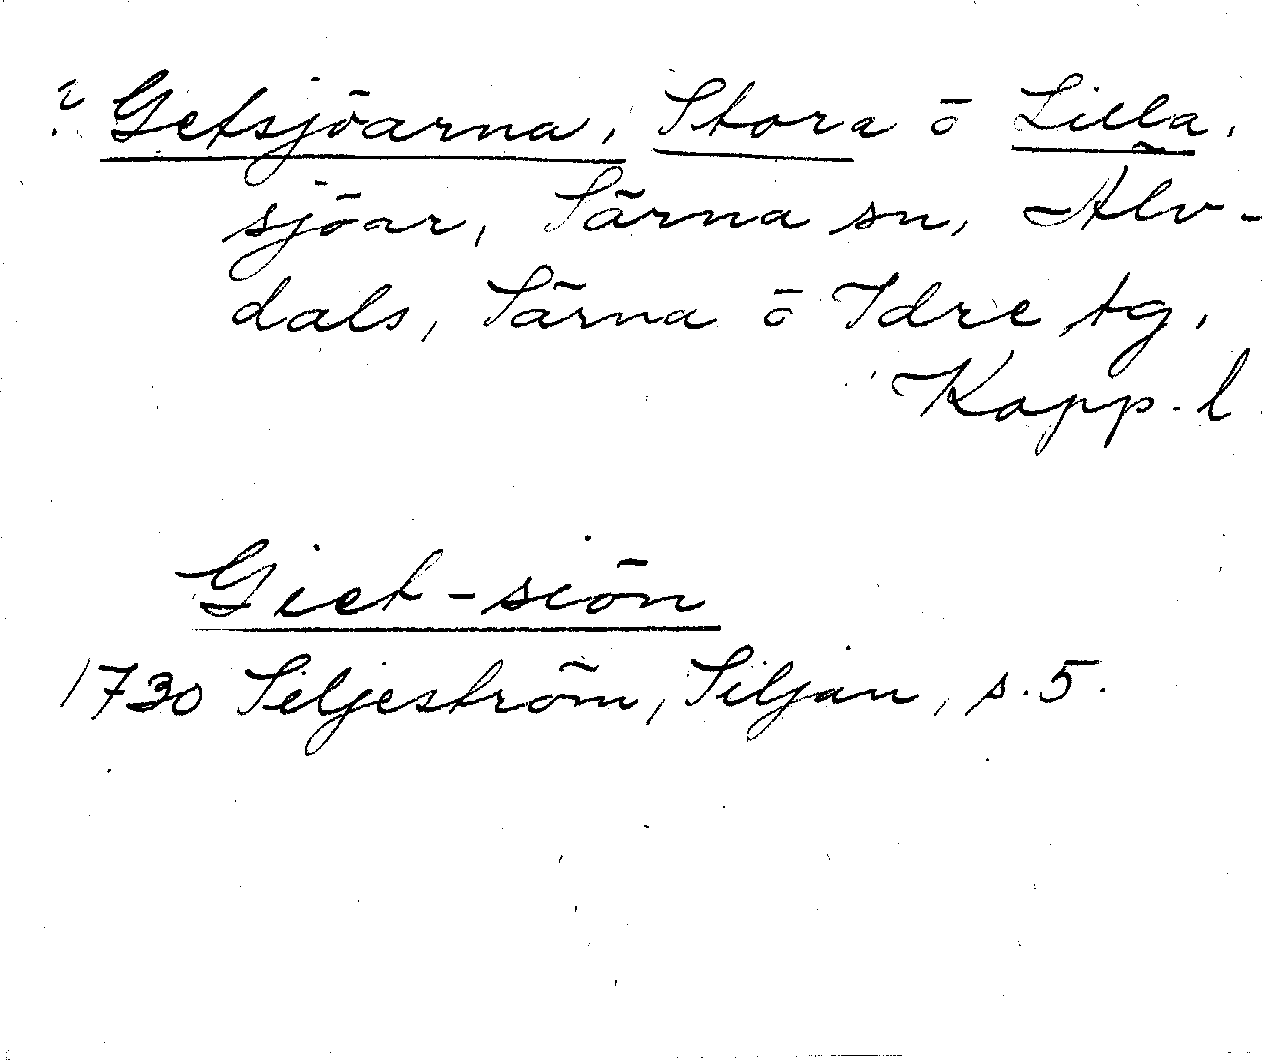 ? Getsjöarna, Stora o Lilla,
sjöar, Särna sn, Älv-
dals, Särna o Idre tg,
Kopp. l.
Giet-siön
1730 Seljeström, Siljan, s. 5.